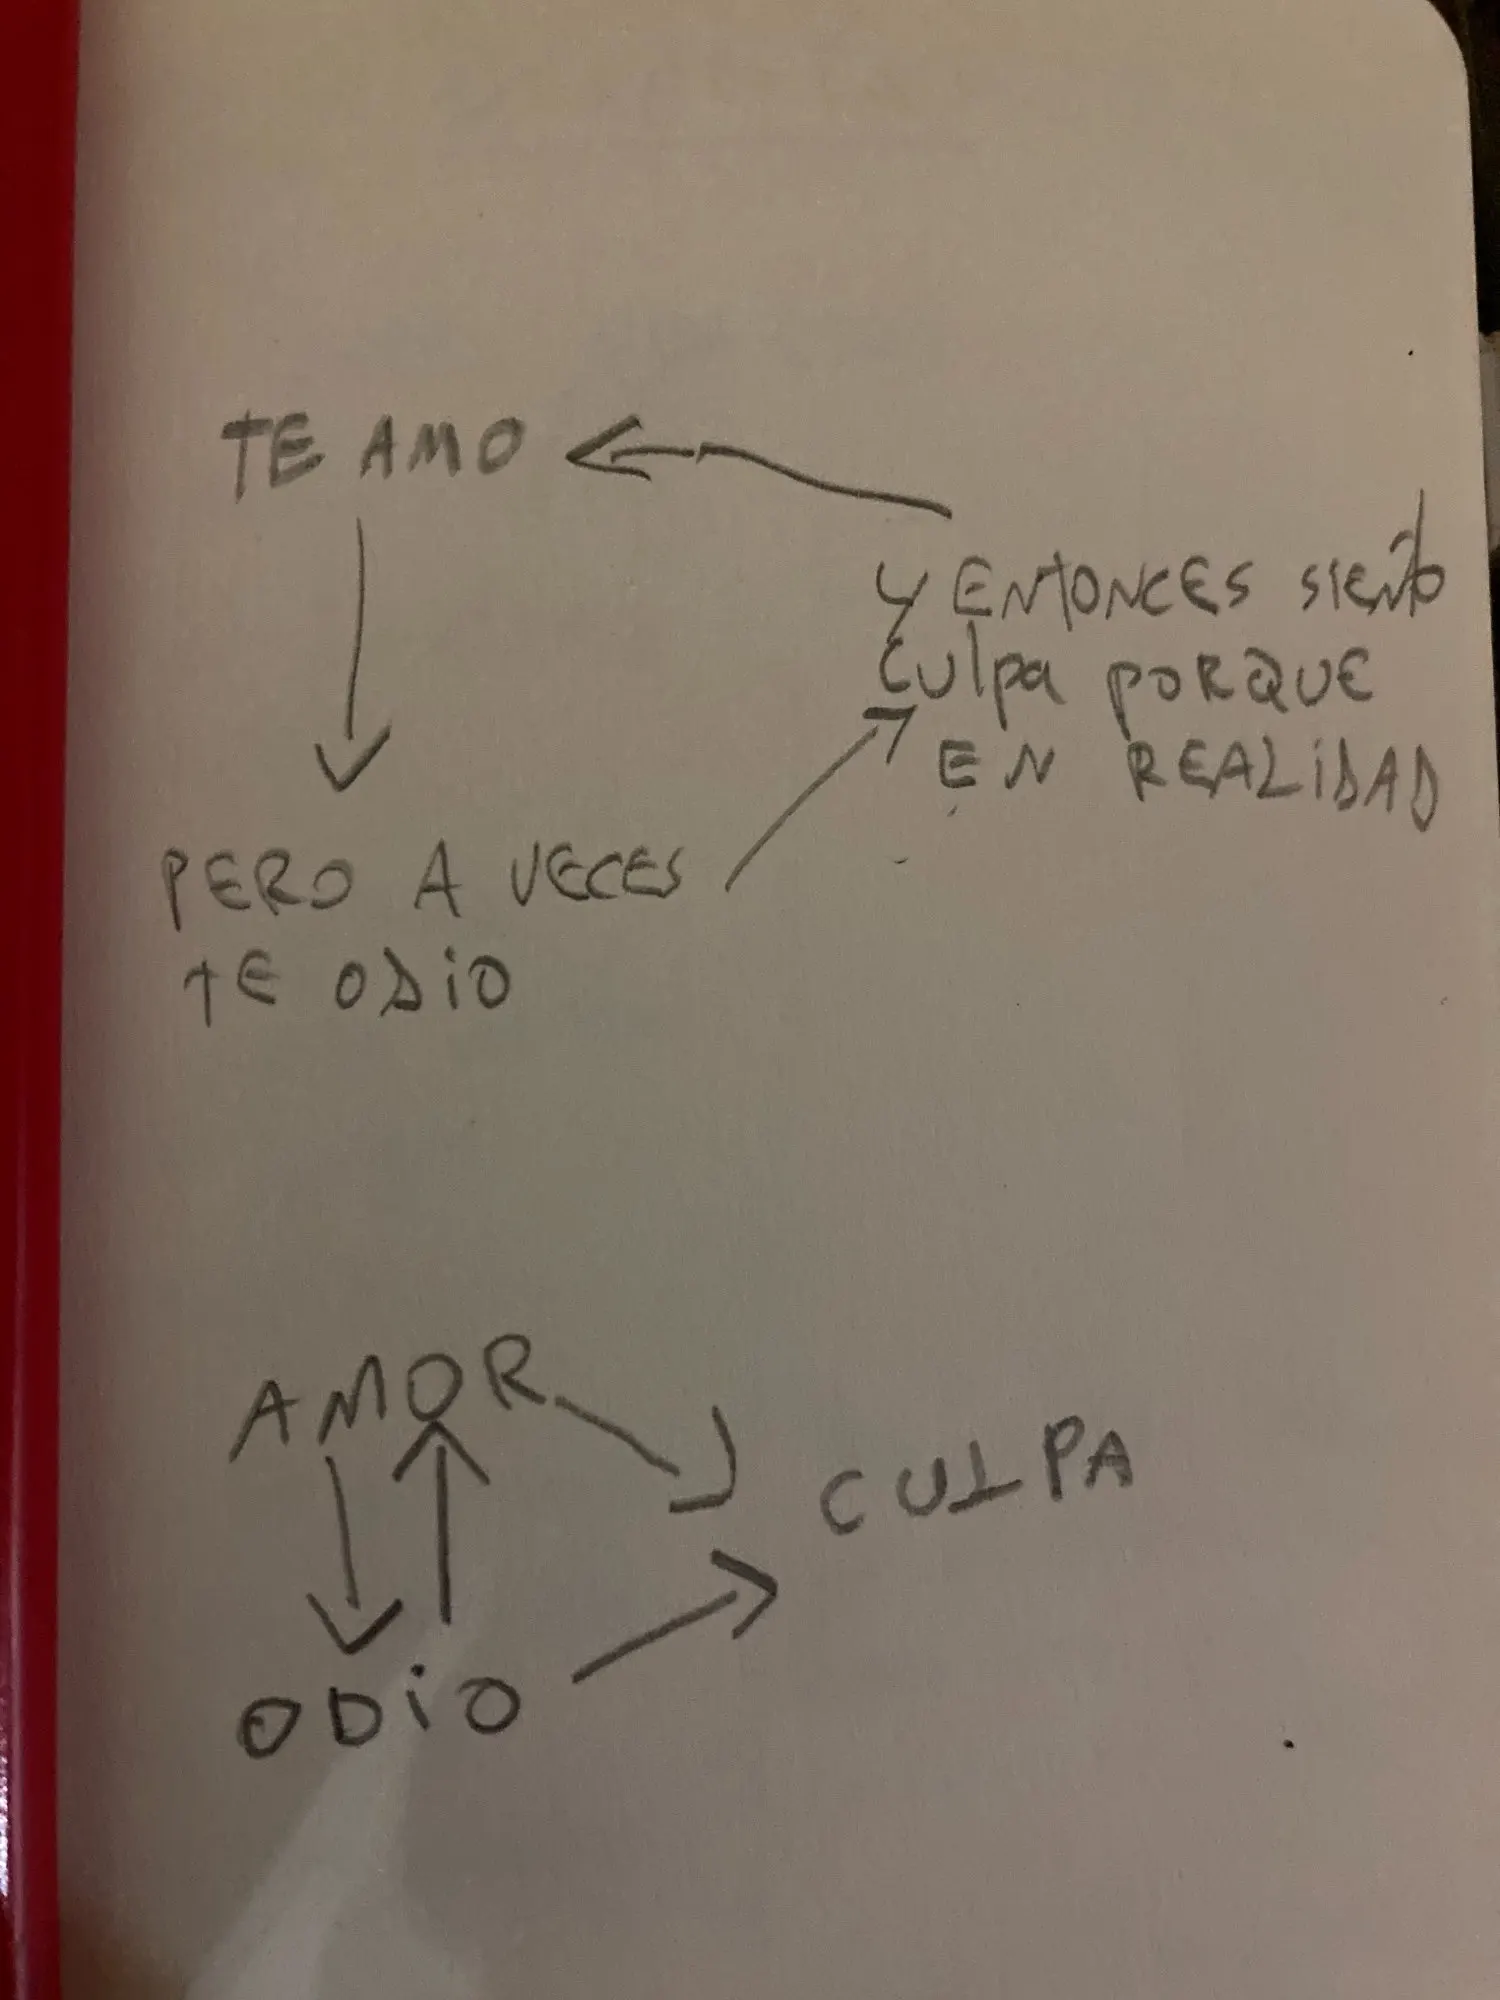 TE AMO
Y ENTONCES SIENTO
CULPA PORQUE
EN REALIDAD
PERO A VECES
TE ODIO
AMOR
CULPA
ODIO